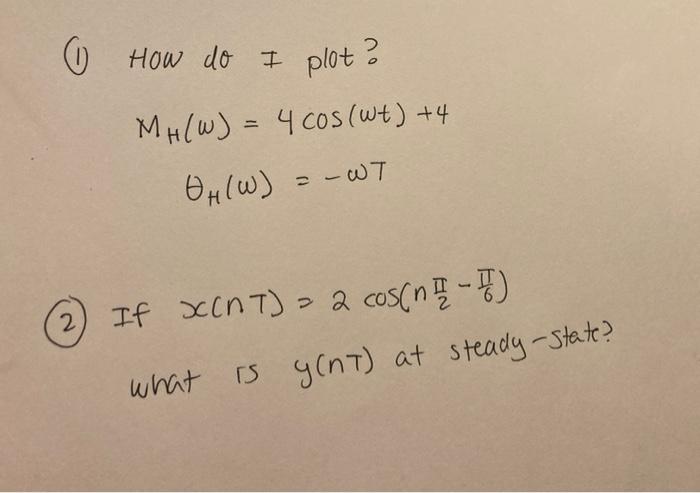 ① How do I plot?
M_H(ω) = 4 cos(ωt) + 4
θ_H(ω) = -ωT
② If x(nT) = 2 cos(n π/2 - π/6)
what is y(nT) at steady-state?